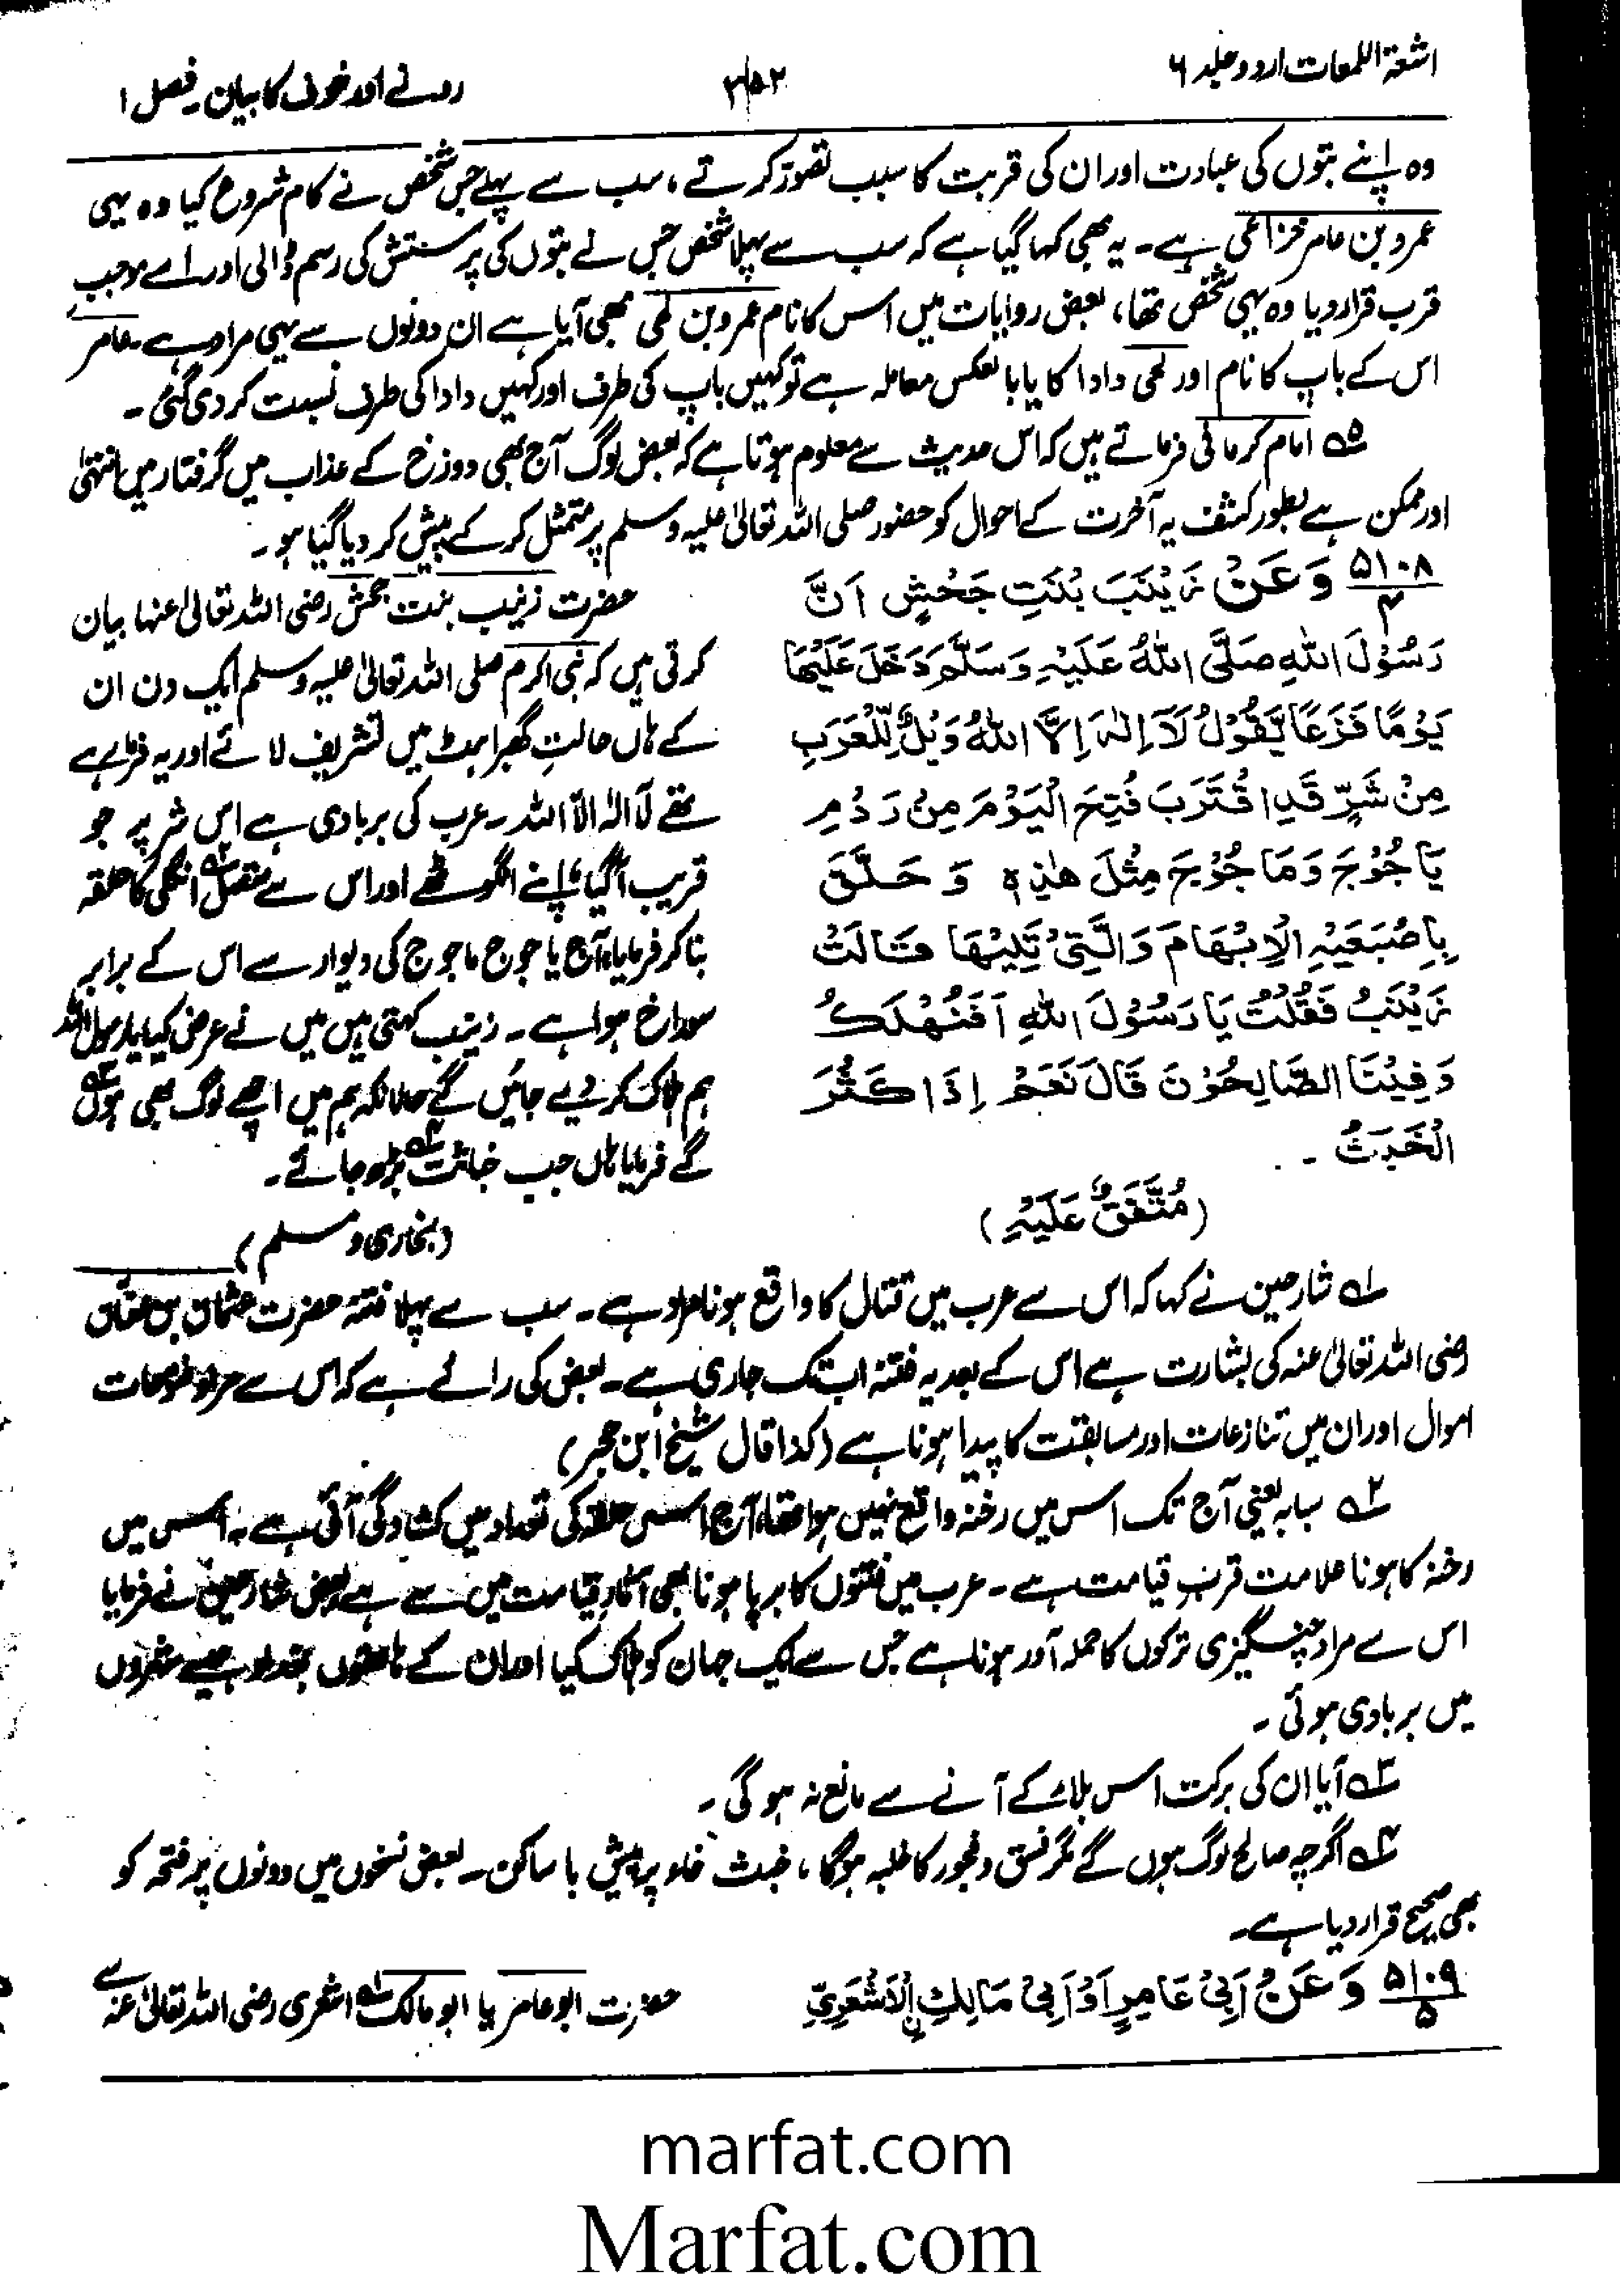 اشعۃ اللمعات اردو جلد ۶
۳۵۲
رونے اور خوف کا بیان۔ فصل ۱
وہ اپنے بتوں کی عبادت اور ان کی قربت کا سبب تصور کرتے، سب سے پہلے جس شخص نے کام شروع کیا وہ یہی
عمرو بن عامر خزاعی ہے۔ یہ بھی کہا گیا ہے کہ سب سے پہلا شخص جس نے بتوں کی پرستش کی رسم ڈالی اور اسے موجب
قرب قرار دیا وہ یہی شخص تھا، بعض روایات میں اس کا نام عمرو بن لحی بھی آیا ہے ان دونوں سے یہی مراد ہے۔ عامر
اس کے باپ کا نام اور لحی دادا کا یا بالعکس معاملہ ہے تو کہیں باپ کی طرف اور کہیں دادا کی طرف نسبت کر دی گئی۔
۵ امام کرمانی فرماتے ہیں کہ اس حدیث سے معلوم ہوتا ہے کہ بعض لوگ آج بھی دوزخ کے عذاب میں گرفتار ہیں انتہیٰ
اور ممکن ہے بطور کشف یہ آخرت کے احوال کو حضور صلی اللہ تعالیٰ علیہ وسلم پر متمثل کر کے پیش کر دیا گیا ہو۔
۵۱۰۸
۴
وَعَنْ زَیْنَبَ بْنَتِ جَحْشٍ اَنَّ
رَسُوْلَ اللہِ صَلَّی اللہُ عَلَیْہِ وَسَلَّمَ دَخَلَ عَلَیْھَا
یَوْمًا فَزَعًا یَّقُوْلُ لَآ اِلٰہَ اِلَّا اللہُ وَیْلٌ لِّلْعَرَبِ
مِنْ شَرٍّ قَدِ اقْتَرَبَ فُتِحَ الْیَوْمَ مِنْ رَدْمِ
یَاْجُوْجَ وَمَاْجُوْجَ مِثْلَ ھٰذِہٖ وَ حَلَّقَ
بِاِصْبَعَیْہِ الْاِبْھَامَ وَالَّتِیْ تَلِیْھَا قَالَتْ
زَیْنَبُ فَقُلْتُ یَا رَسُوْلَ اللہِ اَفَنُھْلَکُ
وَفِیْنَا الصَّالِحُوْنَ قَالَ نَعَمْ اِذَا کَثُرَ
الْخَبَثُ ۔
(مُتَّفَقٌ عَلَیْہِ)
حضرت زینب بنت جحش رضی اللہ تعالیٰ عنہا بیان
کرتی ہیں کہ نبی اکرم صلی اللہ تعالیٰ علیہ وسلم ایک دن ان
کے ہاں حالتِ گھبراہٹ میں تشریف لائے اور یہ فرما رہے
تھے لَآ الٰہ الاّ اللہ۔ عرب کی بربادی ہے اس شر پر جو
قریب آگیا، اپنے انگوٹھے اور اس سے متصل انگلی کا حلقہ
بنا کر فرمایا، آج یاجوج ماجوج کی دیوار سے اس کے برابر
سوراخ ہوا ہے۔ زینب کہتی ہیں میں نے عرض کیا یا رسول اللہ
ہم ہلاک کر دیے جائیں گے حالانکہ ہم میں اچھے لوگ بھی ہوں
گے فرمایا ہاں جب خباثت بڑھ جائے۔
(بخاری و مسلم)
۱ شارحین نے کہا کہ اس سے عرب میں قتال کا واقع ہونا مراد ہے۔ سب سے پہلا فتنہ حضرت عثمان بن عفان
رضی اللہ تعالیٰ عنہ کی بشارت ہے اس کے بعد یہ فتنہ اب تک جاری ہے۔ بعض کی رائے ہے کہ اس سے مراد فتوحات
اموال اور ان میں تنازعات اور مسابقت کا پیدا ہونا ہے (کذا قال شیخ ابن حجر)
۲ سبابہ یعنی آج تک اس میں رخنہ واقع نہیں ہوا تھا، آج اس حلقہ کی تعداد میں کشادگی آئی ہے۔ اس میں
رخنہ کا ہونا علامت قربِ قیامت ہے۔ عرب میں فتنوں کا برپا ہونا بھی آثارِ قیامت میں سے ہے بعض شارحین نے فرمایا
اس سے مراد چنگیزی ترکوں کا حملہ آور ہونا ہے جس سے ایک جہان کو ہلاک کیا اور ان کے ہاتھوں بغداد جیسے شہروں
میں بربادی ہوئی۔
۳ آیا ان کی برکت اس بلاء کے آنے سے مانع نہ ہو گی۔
۴ اگرچہ صالح لوگ ہوں گے مگر فسق و فجور کا غلبہ ہوگا، خبث خاء پر پیش با ساکن۔ بعض نسخوں میں دونوں پر فتحہ کو
بھی صحیح قرار دیا ہے۔
۵۱۰۹
۵
وَعَنْ اَبِیْ عَامِرٍ اَوْ اَبِیْ مَالِکِ نِ الْاَشْعَرِیِّ
حضرت ابو عامر یا ابو مالک اشعری رضی اللہ تعالیٰ عنہ سے
marfat.com
Marfat.com